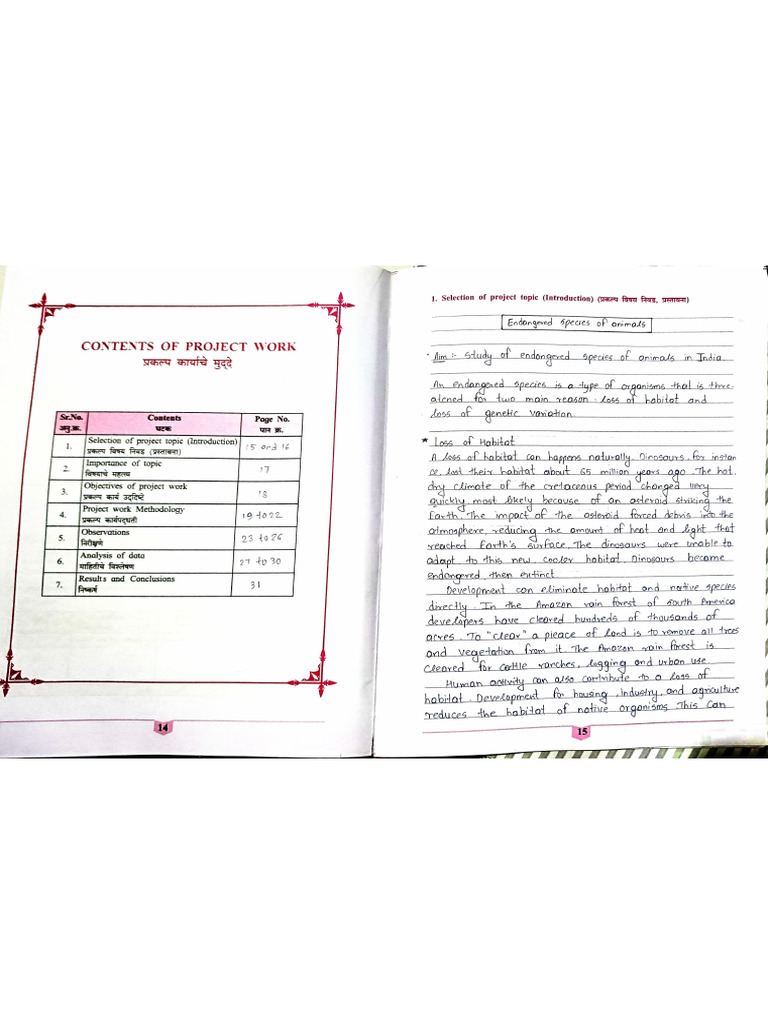 CONTENTS OF PROJECT WORK
प्रकल्प कार्याचे मुद्दे
Sr.No. Contents Page No.
अनु.क्र. घटक पान क्र.
1. Selection of project topic (Introduction) 15 and 16
प्रकल्प विषय निवड (प्रस्तावना)
2. Importance of topic 17
विषयाचे महत्त्व
3. Objectives of project work 18
प्रकल्प कार्य उद्दिष्टे
4. Project work Methodology 19 to 22
प्रकल्प कार्यपद्धती
5. Observations 23 to 26
निरीक्षणे
6. Analysis of data 27 to 30
माहितीचे विश्लेषण
7. Results and Conclusions 31
निष्कर्ष
14
1. Selection of project topic (Introduction) (प्रकल्प विषय निवड, प्रस्तावना)
Endangered species of animals
Aim :- Study of endangered species of animals in India.
An endangered species is a type of organisms that is thre-
atened for two main reason : loss of habitat and
loss of genetic variation.
* Loss of Habitat
A loss of habitat can happens naturally. Dinosaurs, for instan
ce, lost their habitat about 65 million years ago. The hot,
dry climate of the cretaceous period changed very
quickly, most likely because of an asteroid striking the
Earth. The impact of the asteroid forced debris into the
atmosphere, reducing the amount of heat and light that
reached Earth's surface. The dinosaurs were unable to
adapt to this new, cooler habitat. Dinosaurs became
endangered, then extinct.
Development can eliminate habitat and native species
directly. In the Amazon rain forest of south America
developers have cleared hundreds of thousands of
acres. To "clear" a pleace of land is to remove all trees
and vegetation from it. The Amazon rain forest is
cleared for cattle ranches, logging and urban use.
Human activity can also contribute to a loss of
habitat. Development for housing, industry, and agriculture
reduces the habitat of native organisms This can
15